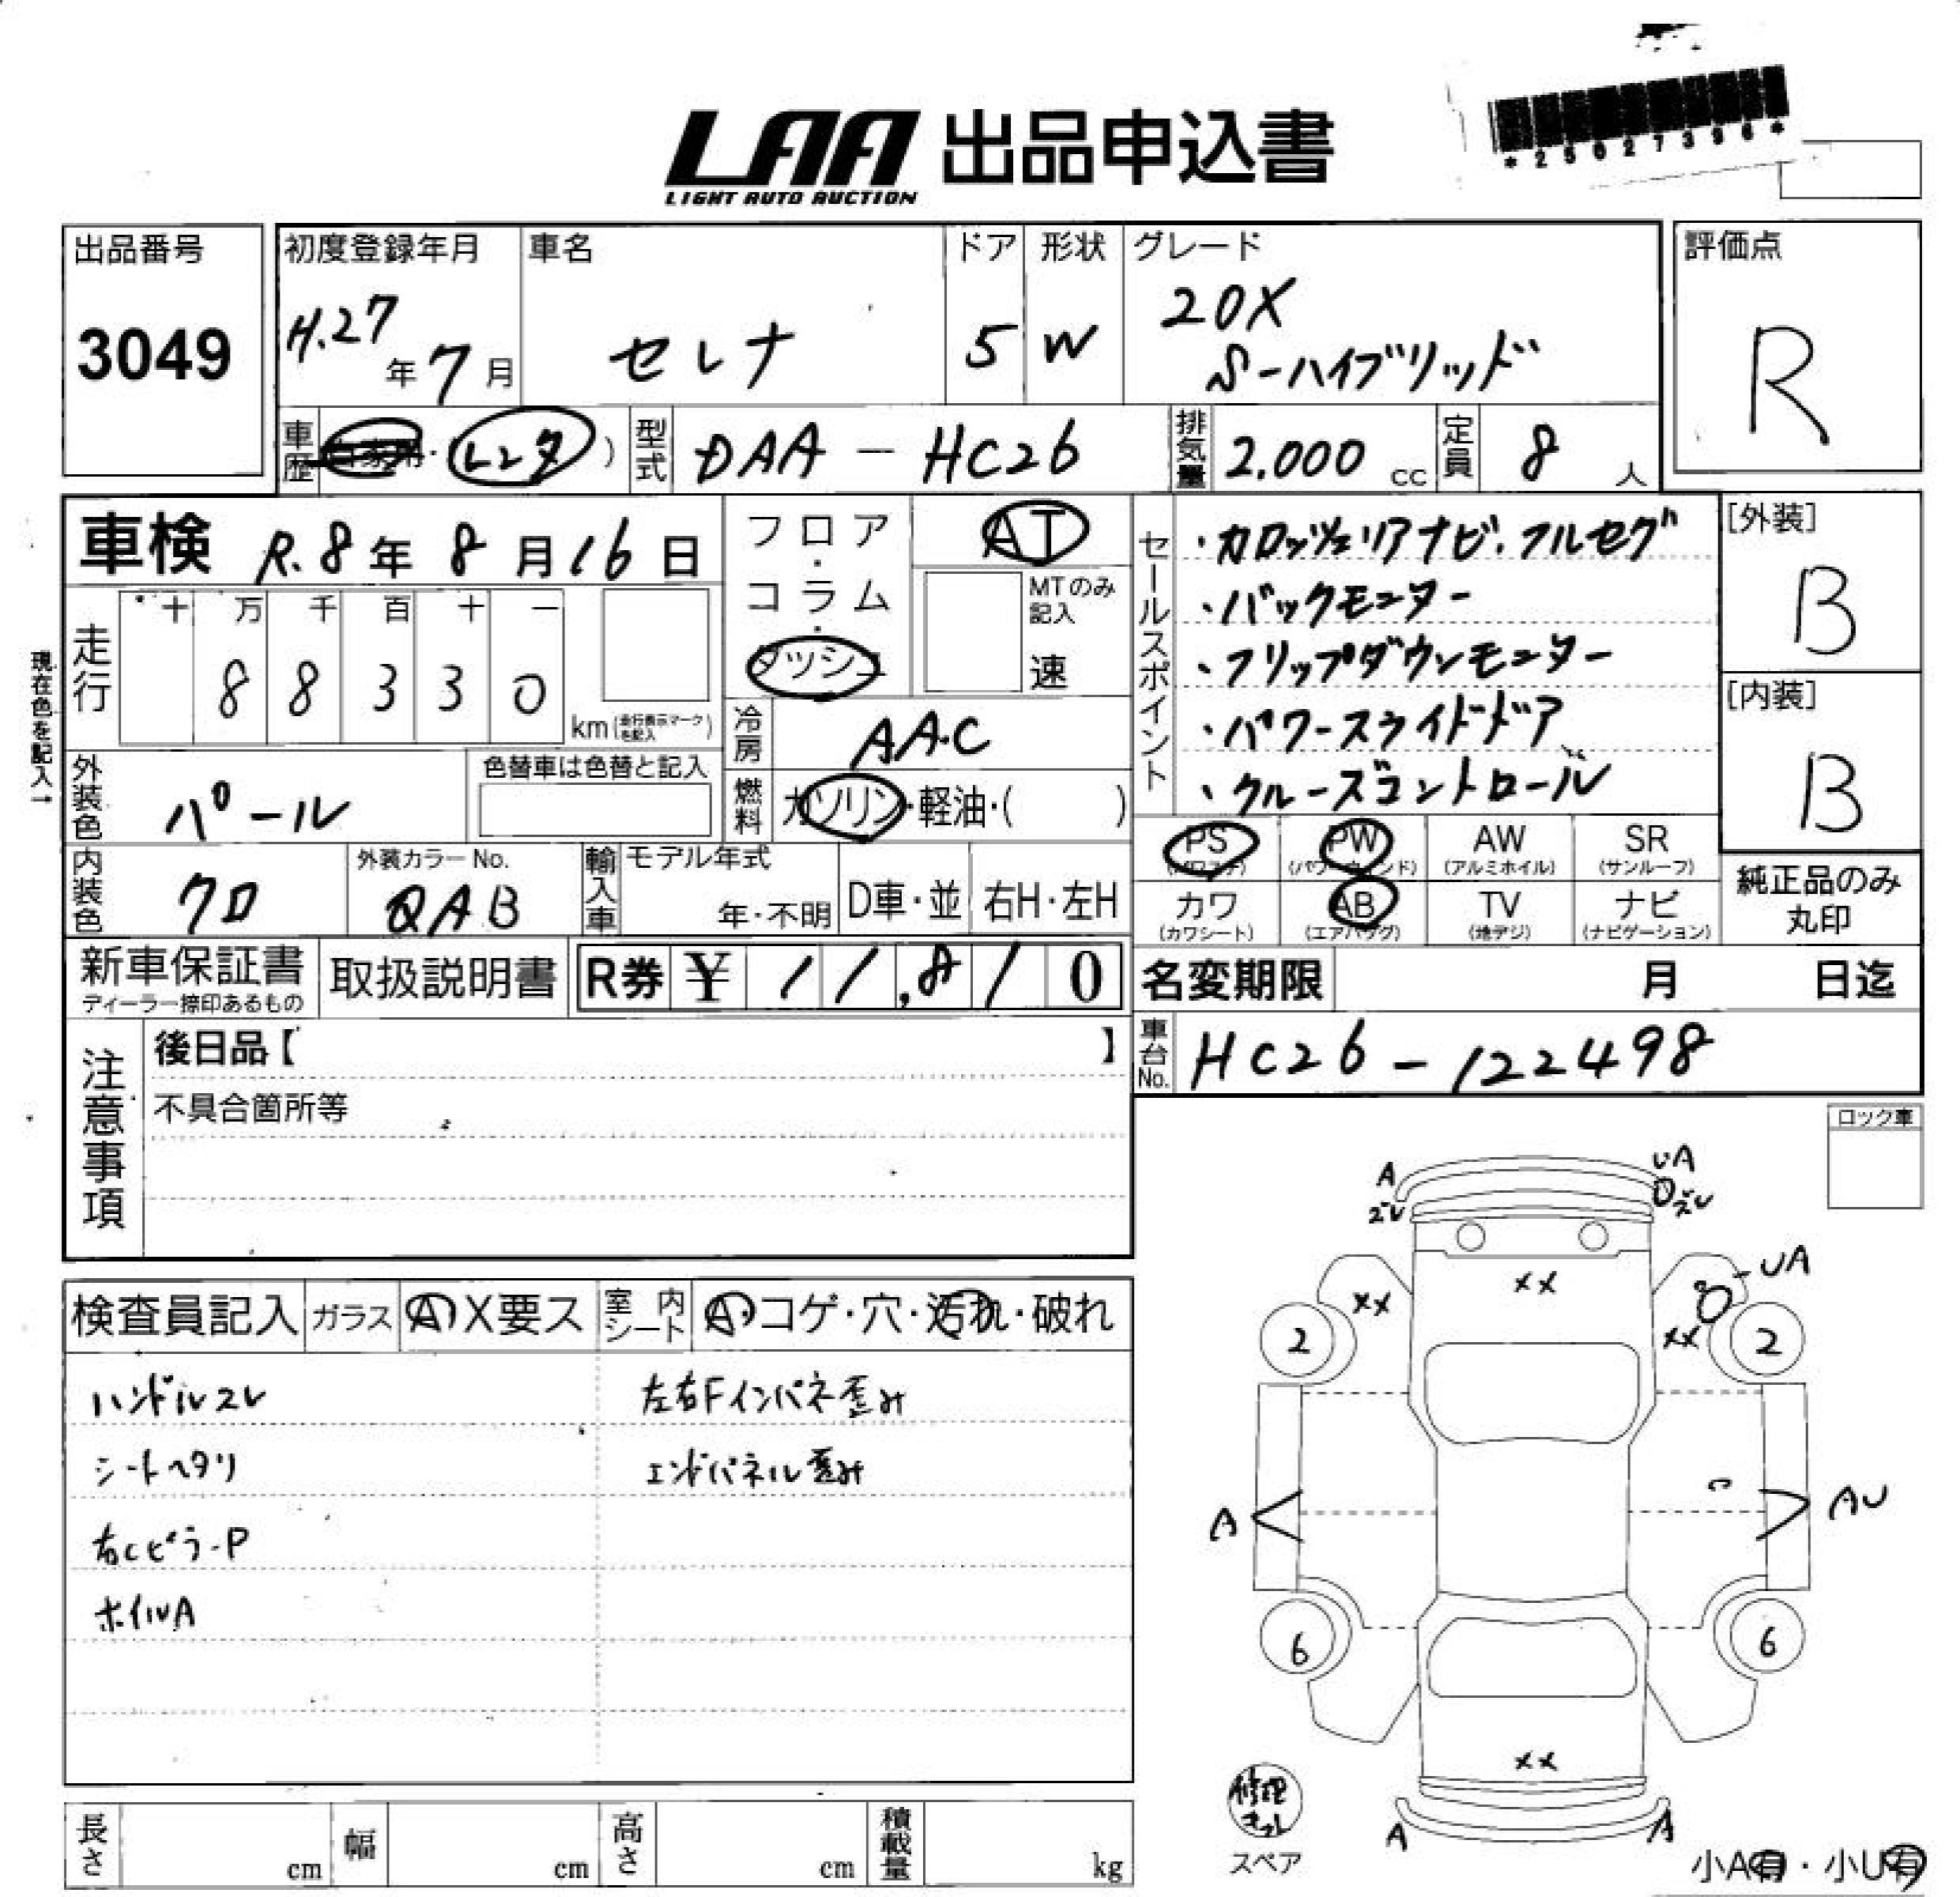 *25027396*
LAA 出品申込書
LIGHT AUTO AUCTION
出品番号
3049
初度登録年月
H.27年7月
車名
セレナ
ドア
5
形状
W
グレード
20X
S-ハイブリッド
評価点
R
車歴
自家用・(レンタ)
型式
DAA-HC26
排気量
2.000 cc
定員
8人
車検 R.8年8月16日
フロア・コラム・ダッシュ
AT
MTのみ記入
速
走行
十万千百十一
88330
km(走行表示マークを記入)
現在色を記入→
冷房
AAC
外装色
パール
色替車は色替と記入
燃料
ガソリン・軽油・( )
内装色
クロ
外装カラーNo.
QAB
輸入車
モデル年式
年・不明
D車・並
右H・左H
セールスポイント
・カロッツェリアナビ.フルセグ
・バックモニター
・フリップダウンモニター
・パワースライドドア
・クルーズコントロール
[外装]
B
[内装]
B
PS PW AW SR
(パワステ) (パワーウィンド) (アルミホイル) (サンルーフ)
カワ AB TV ナビ
(カワシート) (エアバッグ) (地デジ) (ナビゲーション)
純正品のみ
丸印
新車保証書
ディーラー捺印あるもの
取扱説明書
R券 ¥11,810
名変期限 月 日迄
車台No.
HC26-122498
注意事項
後日品【 】
不具合箇所等
ロック車
検査員記入
ガラス
A X要ス
室内シート
A・コゲ・穴・汚れ・破れ
ハンドルスレ
シートヘタリ
右CピラーP
ホイルA
左右Fインパネ歪み
エンドパネル歪み
A
ズレ
UA
ズレ
XX
UA
XX
XX
2
2
A
AU
6
6
XX
A
A
修理キット
スペア
小A有・小U有
長さ cm
幅 cm
高さ cm
積載量 kg